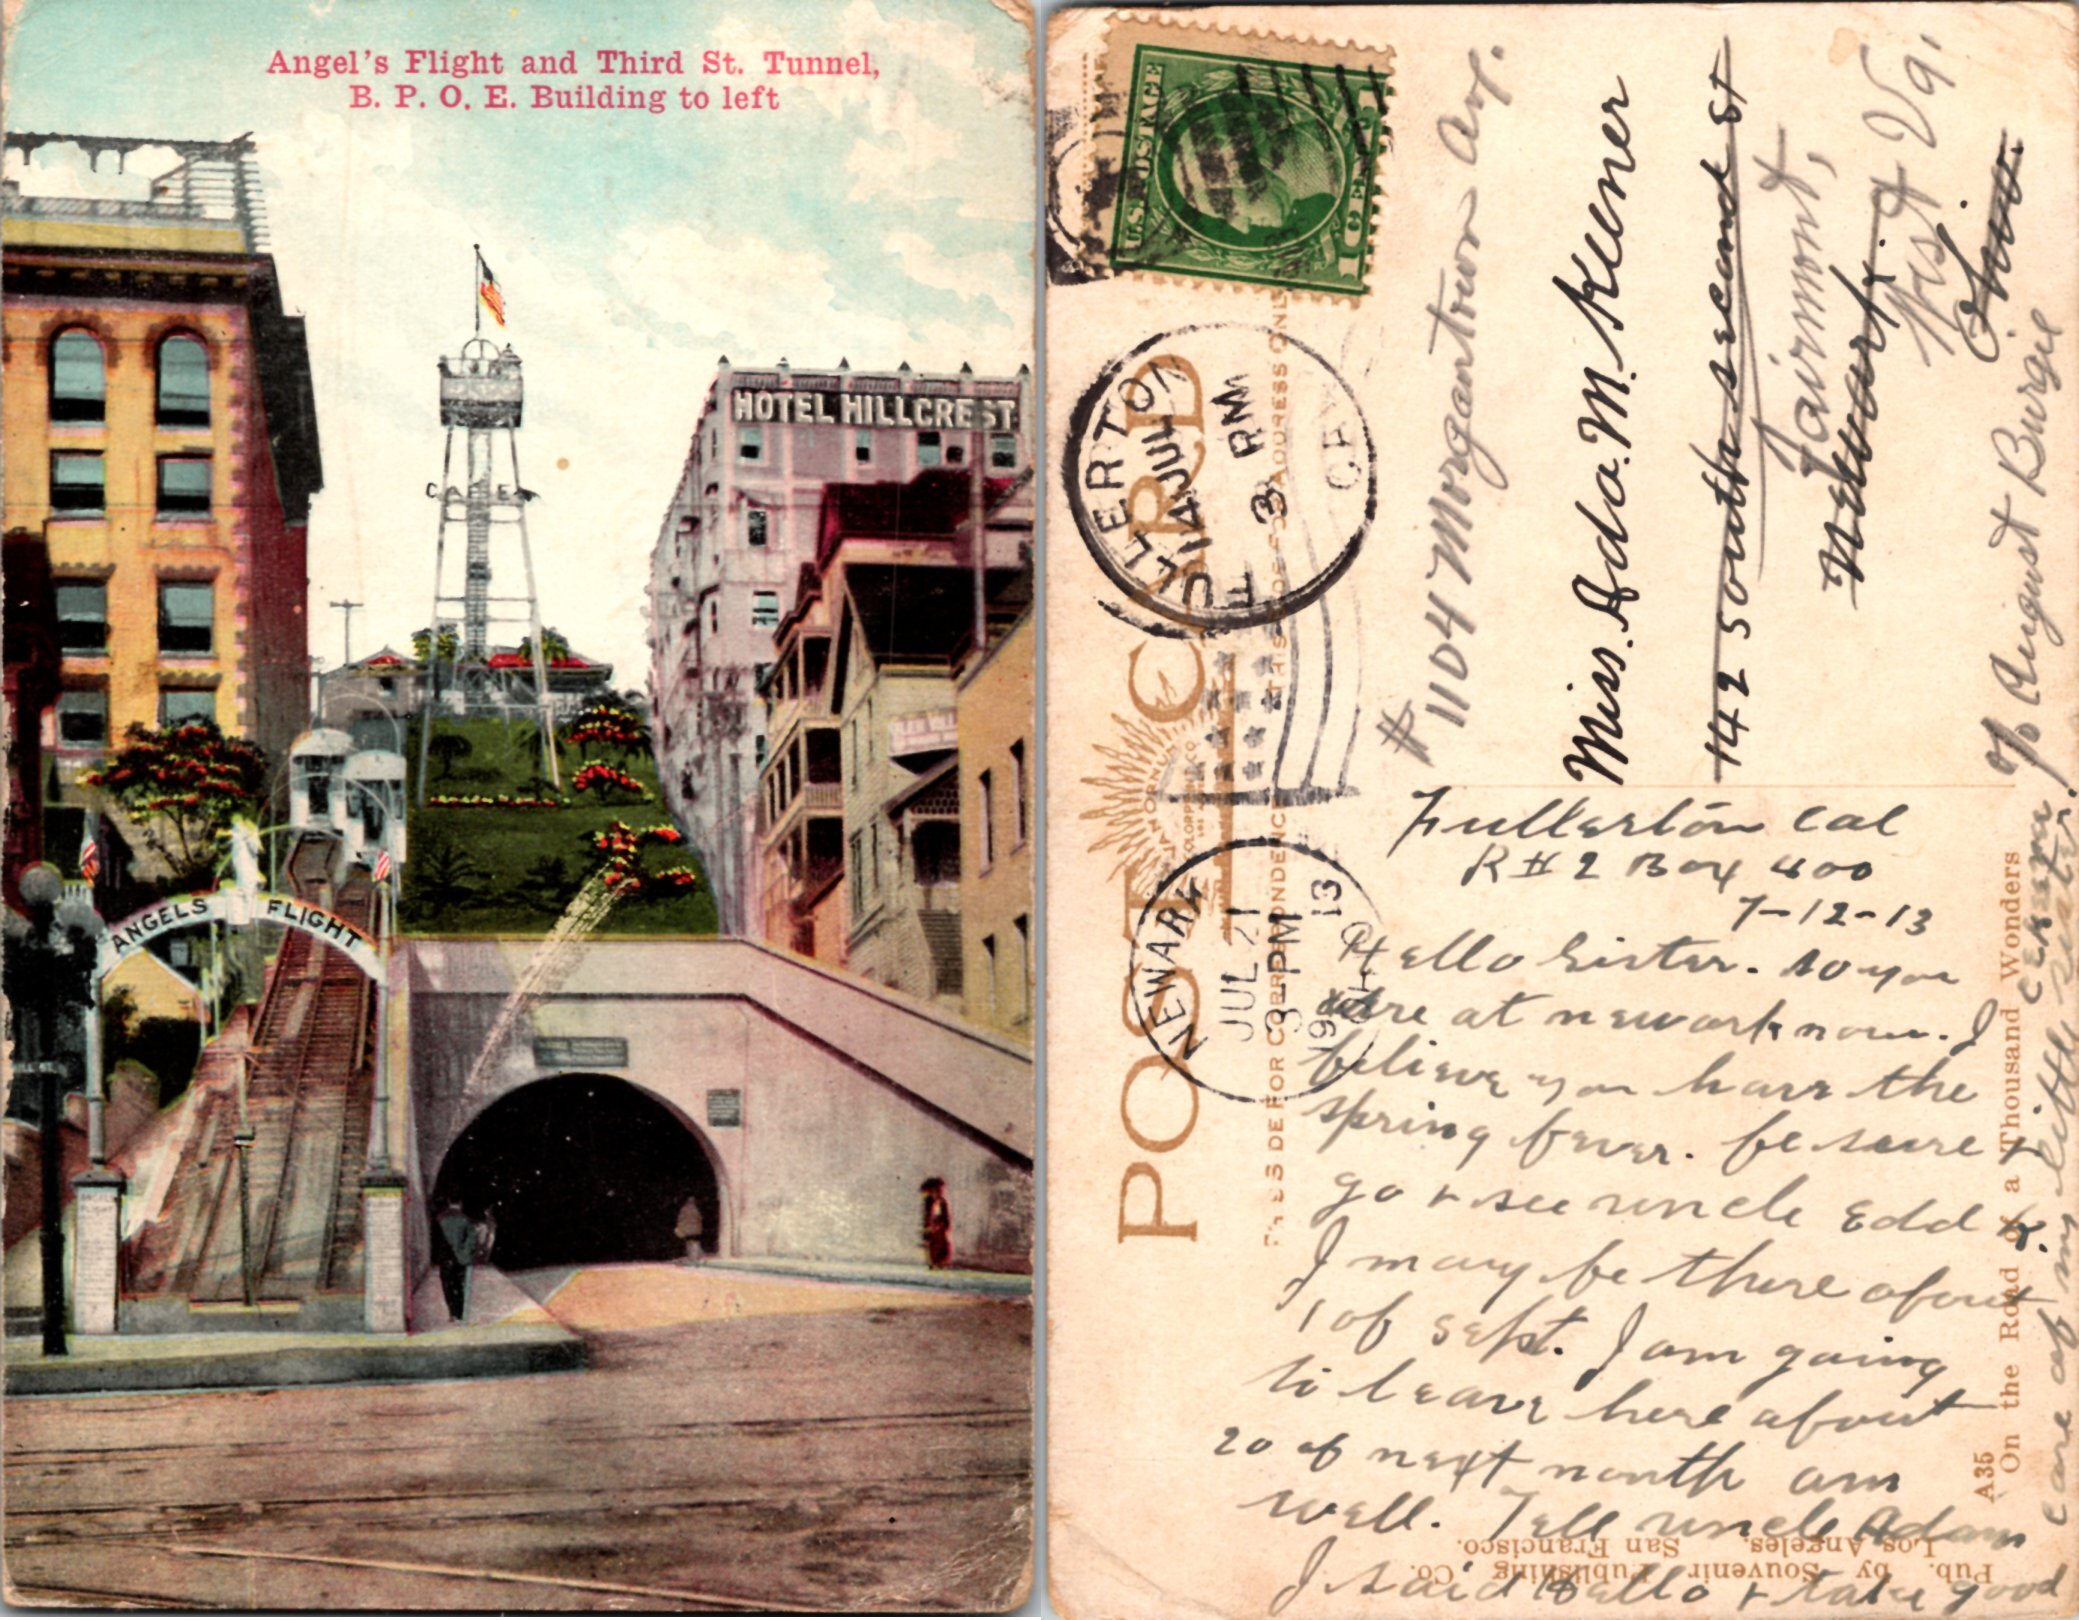 Angel's Flight and Third St. Tunnel,
B. P. O. E. Building to left
HOTEL HILLCREST
CAMERA
ANGELS FLIGHT
HILL ST.
U.S. POSTAGE
1 CENT 1
FULLERTON
14 JUL
3 PM
CAL
NEWARK
JUL 21
3-PM
1913
OHIO
POST CARD
THIS SIDE FOR CORRESPONDENCE
THIS SIDE FOR ADDRESS ONLY
# 1104 Morgantown Av.
Miss. Ada. M. Keener
142 South Second St
Fairmont,
Newark.
West Va,
Ohio.
c/o August Burgie
Fullerton Cal
R # 2 Box 400
7-12-13
Hello Sister. So you
are at newark now. I
believe you have the
spring fever. be sure +
go + see uncle Edd K.
I may be there about
1 of Sept. I am going
to leave here about
20 of next month am
well. Tell uncle Adam
I said Hello + take good
care of my little sister.
On the Road of a Thousand Wonders
A35
Pub. by Souvenir Publishing Co.
Los Angeles. San Francisco.